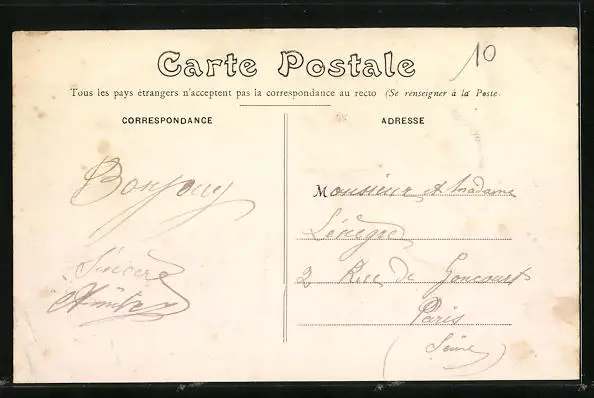 Carte Postale
10
Tous les pays étrangers n'acceptent pas la correspondance au recto (Se renseigner à la Poste.
CORRESPONDANCE
ADRESSE
Bonjour
Sincère
Monsieur et Madame
2 Rue de Goncourt
Paris
(Seine)